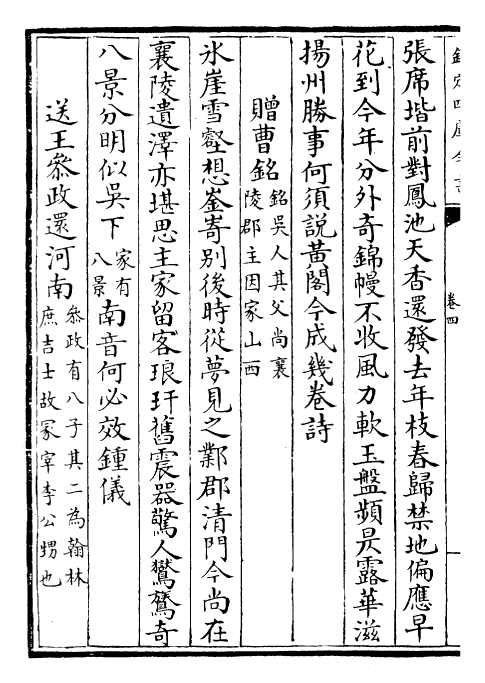 欽定四庫全書
卷四
張席堦前對鳳池天香還發去年枝春歸禁地偏應早
花到今年分外奇錦幔不收風力軟玉盤頻昃露華滋
揚州勝事何須說黃閣今成幾卷詩
贈曹銘銘吳人其父尚襄陵郡主因家山西
氷崖雪壑想崟嵜别後時從夢見之鄴郡清門今尚在
襄陵遺澤亦堪思主家留客琅玕舊震器驚人鸑鷟奇
八景分明似吳下家有八景南音何必效鍾儀
送王叅政還河南叅政有八子其二為翰林庶吉士故冢宰李公甥也